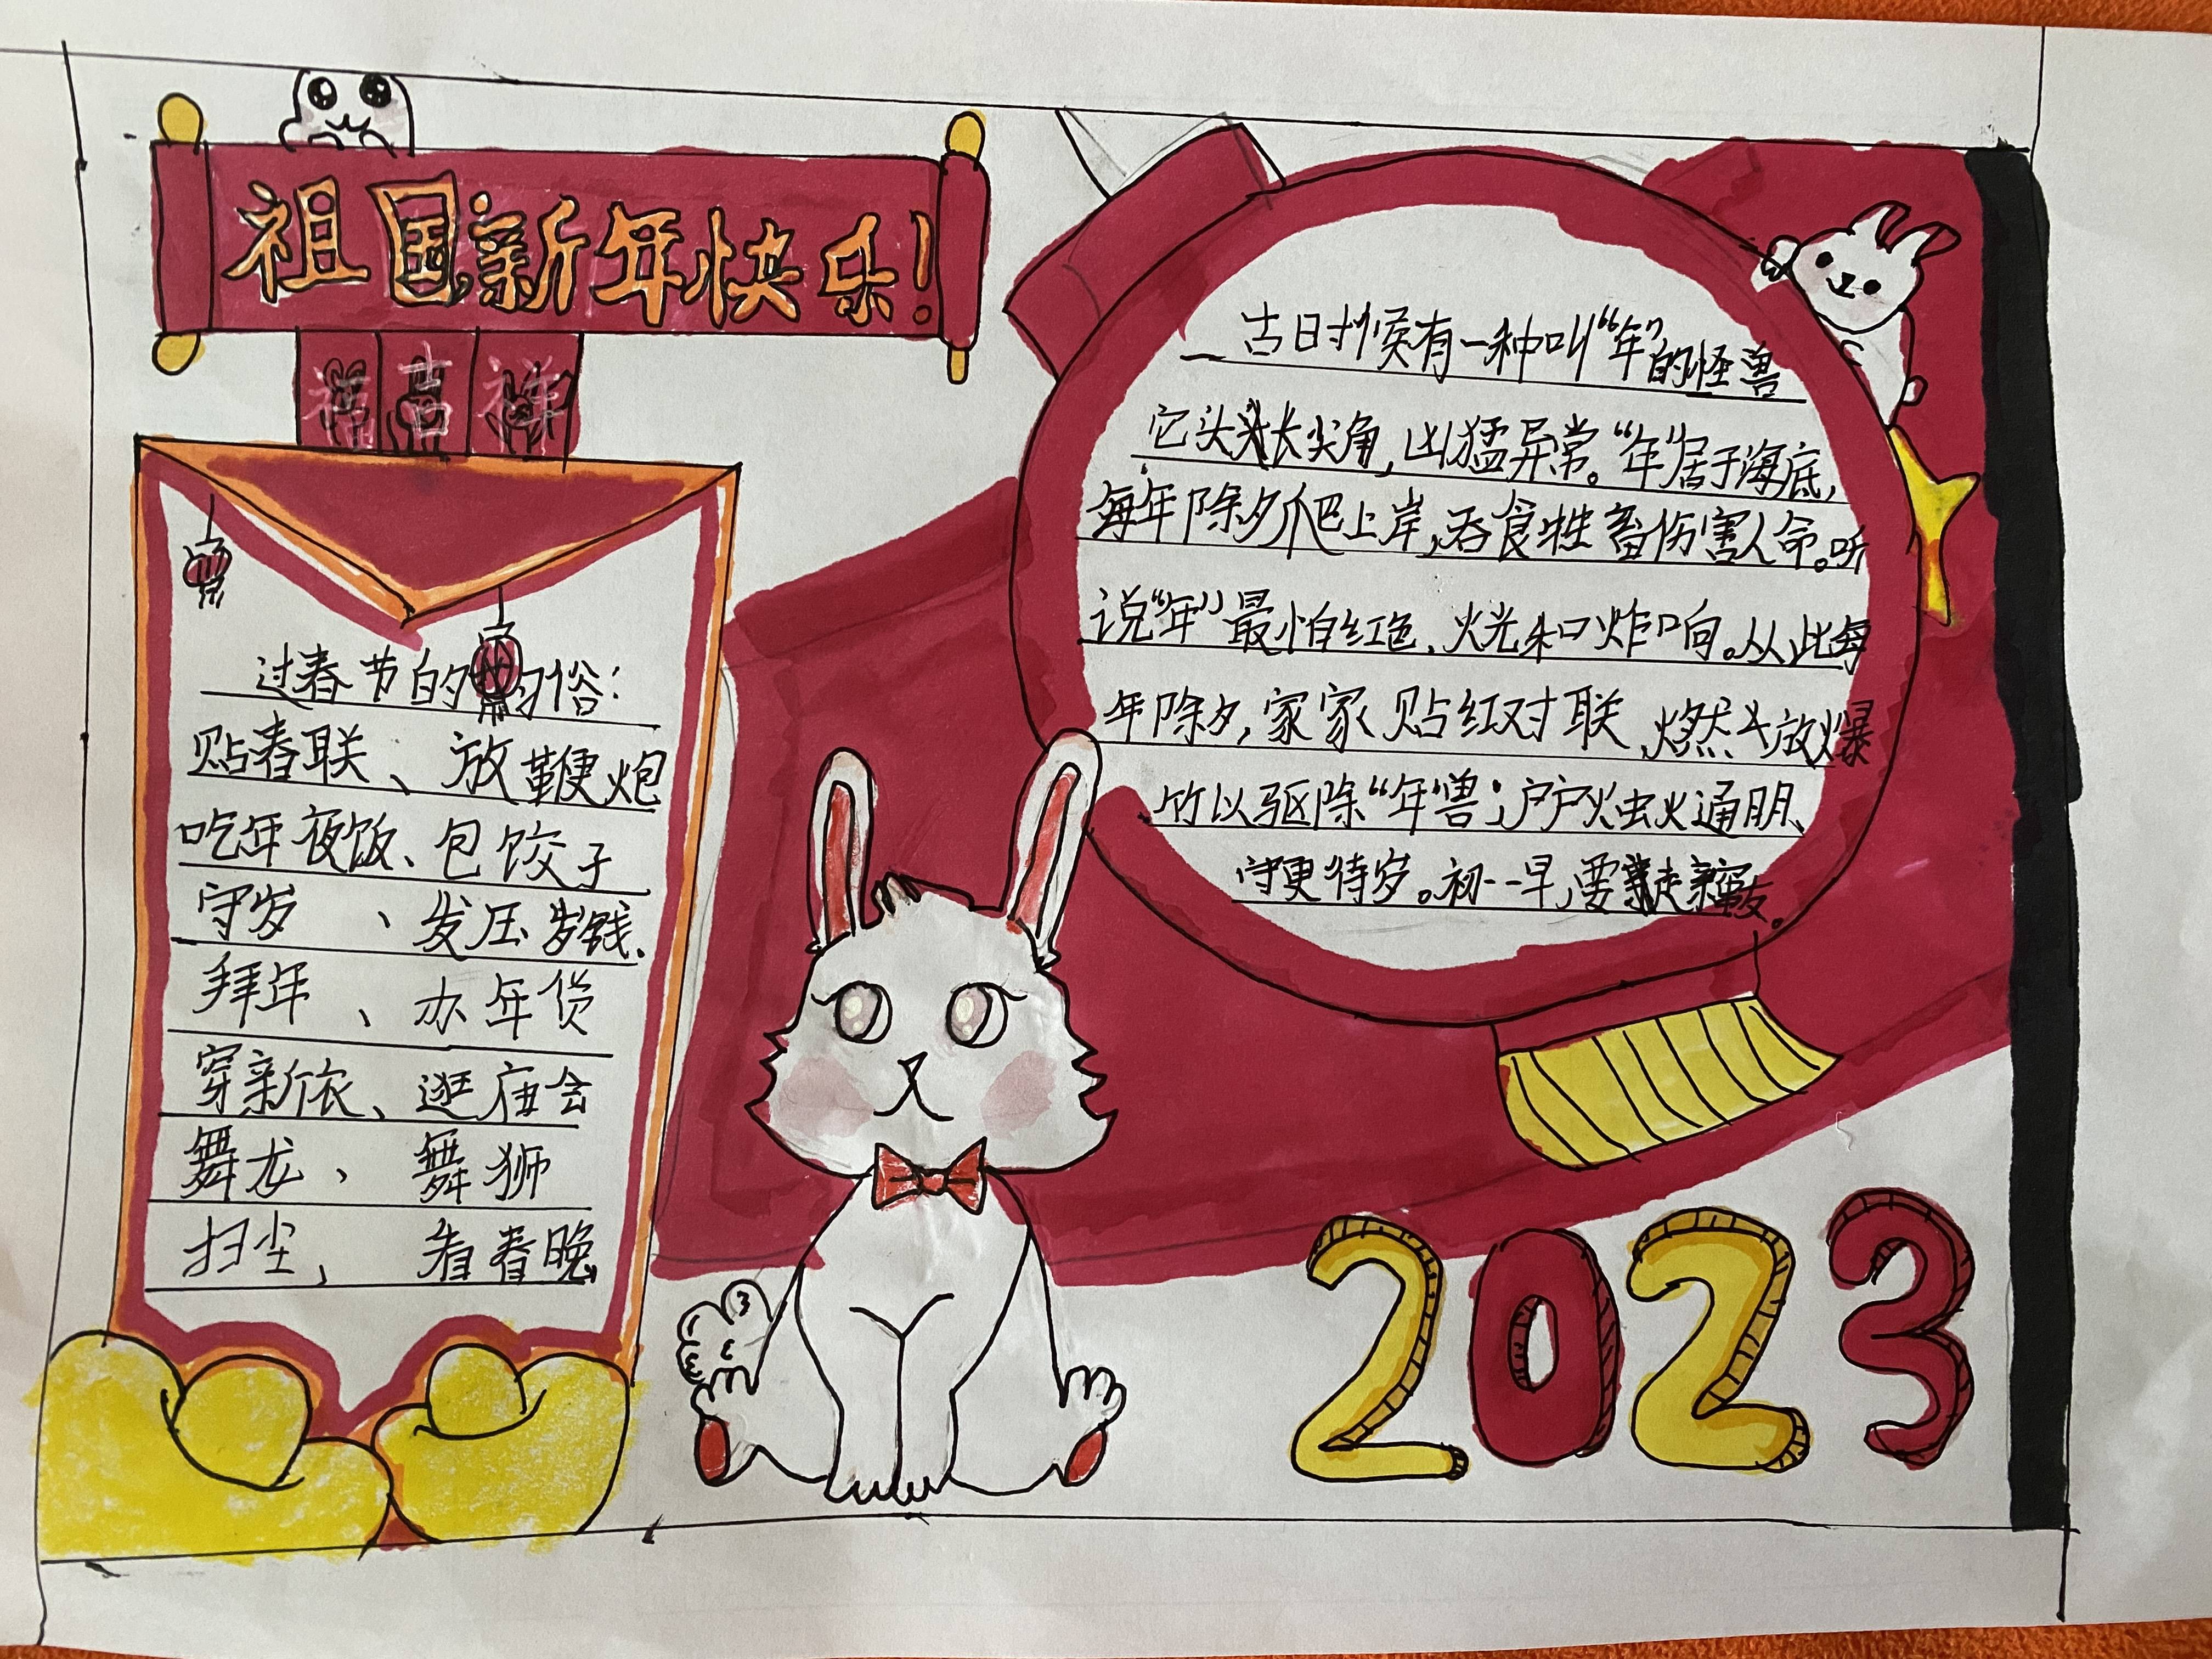 祖国新年快乐！
福吉祥
过春节的习俗：
贴春联、放鞭炮
吃年夜饭、包饺子
守岁、发压岁钱、
拜年、办年货
穿新衣、逛庙会
舞龙、舞狮
扫尘，看春晚
古时候有一种叫“年”的怪兽
它头长尖角，凶猛异常。“年”居于海底，
每年除夕爬上岸，吞食牲畜伤害人命。听
说“年”最怕红色、火光和炸响。从此每
年除夕，家家贴红对联、燃放爆
竹以驱除“年”兽；户户烛火通明、
守更待岁。初一一早，要走亲友。
2023